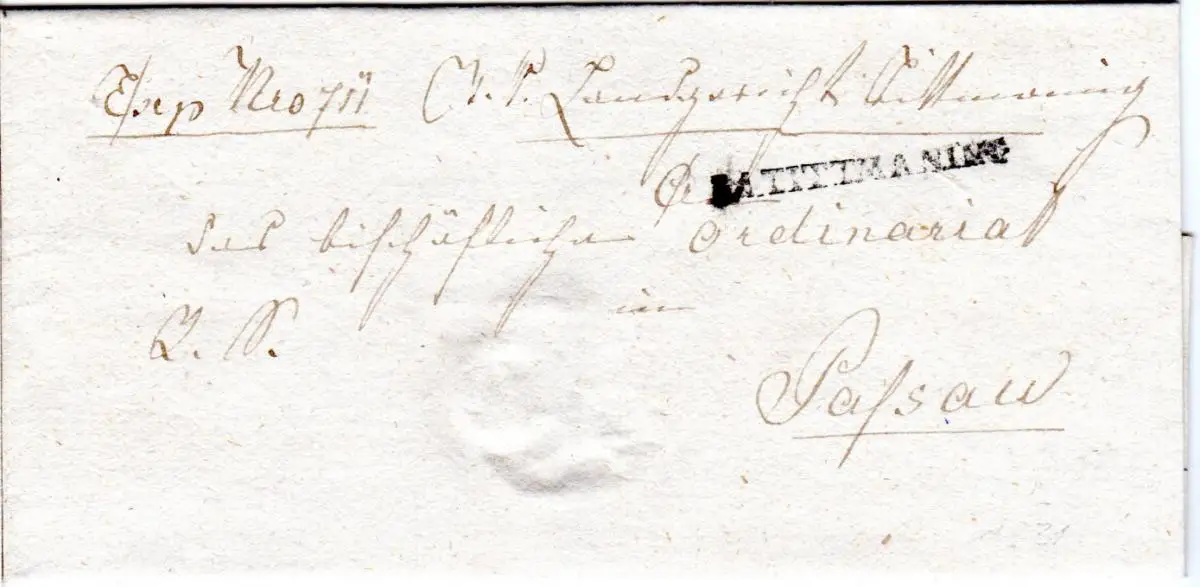 Exp Nro 711 Landgericht Tittmoning
TITTMANING
An
das bischöfliche Ordinariat
in
Passau